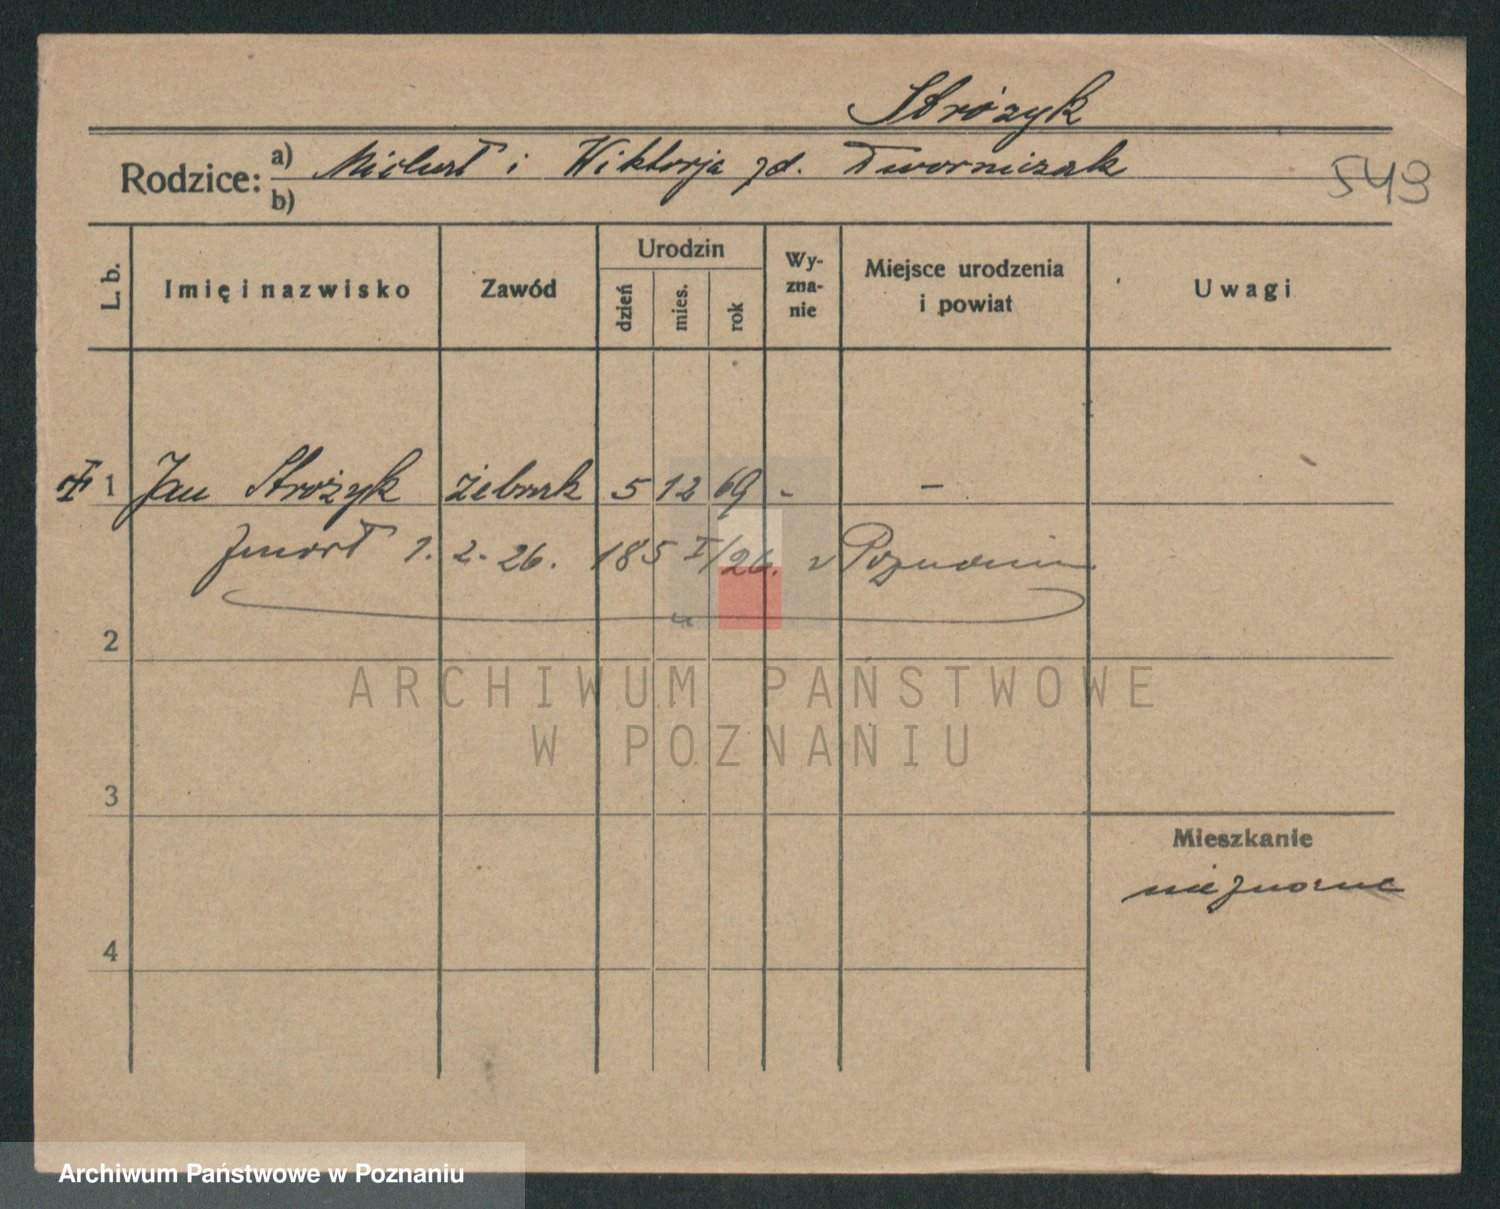 Stróżyk
Rodzice: a) Michał i Wiktorja zd. Tworniczak
543
b)
L. b. Imię i nazwisko Zawód Urodzin dzień mies. rok Wy-zna-nie Miejsce urodzenia i powiat Uwagi
1 Jan Stróżyk żebrak 5 12 69 - -
zmarł 1. 2. 26. 185 I/26. w Poznaniu
2
ARCHIWUM PAŃSTWOWE
W POZNANIU
3
Mieszkanie
nieznane
4
Archiwum Państwowe w Poznaniu